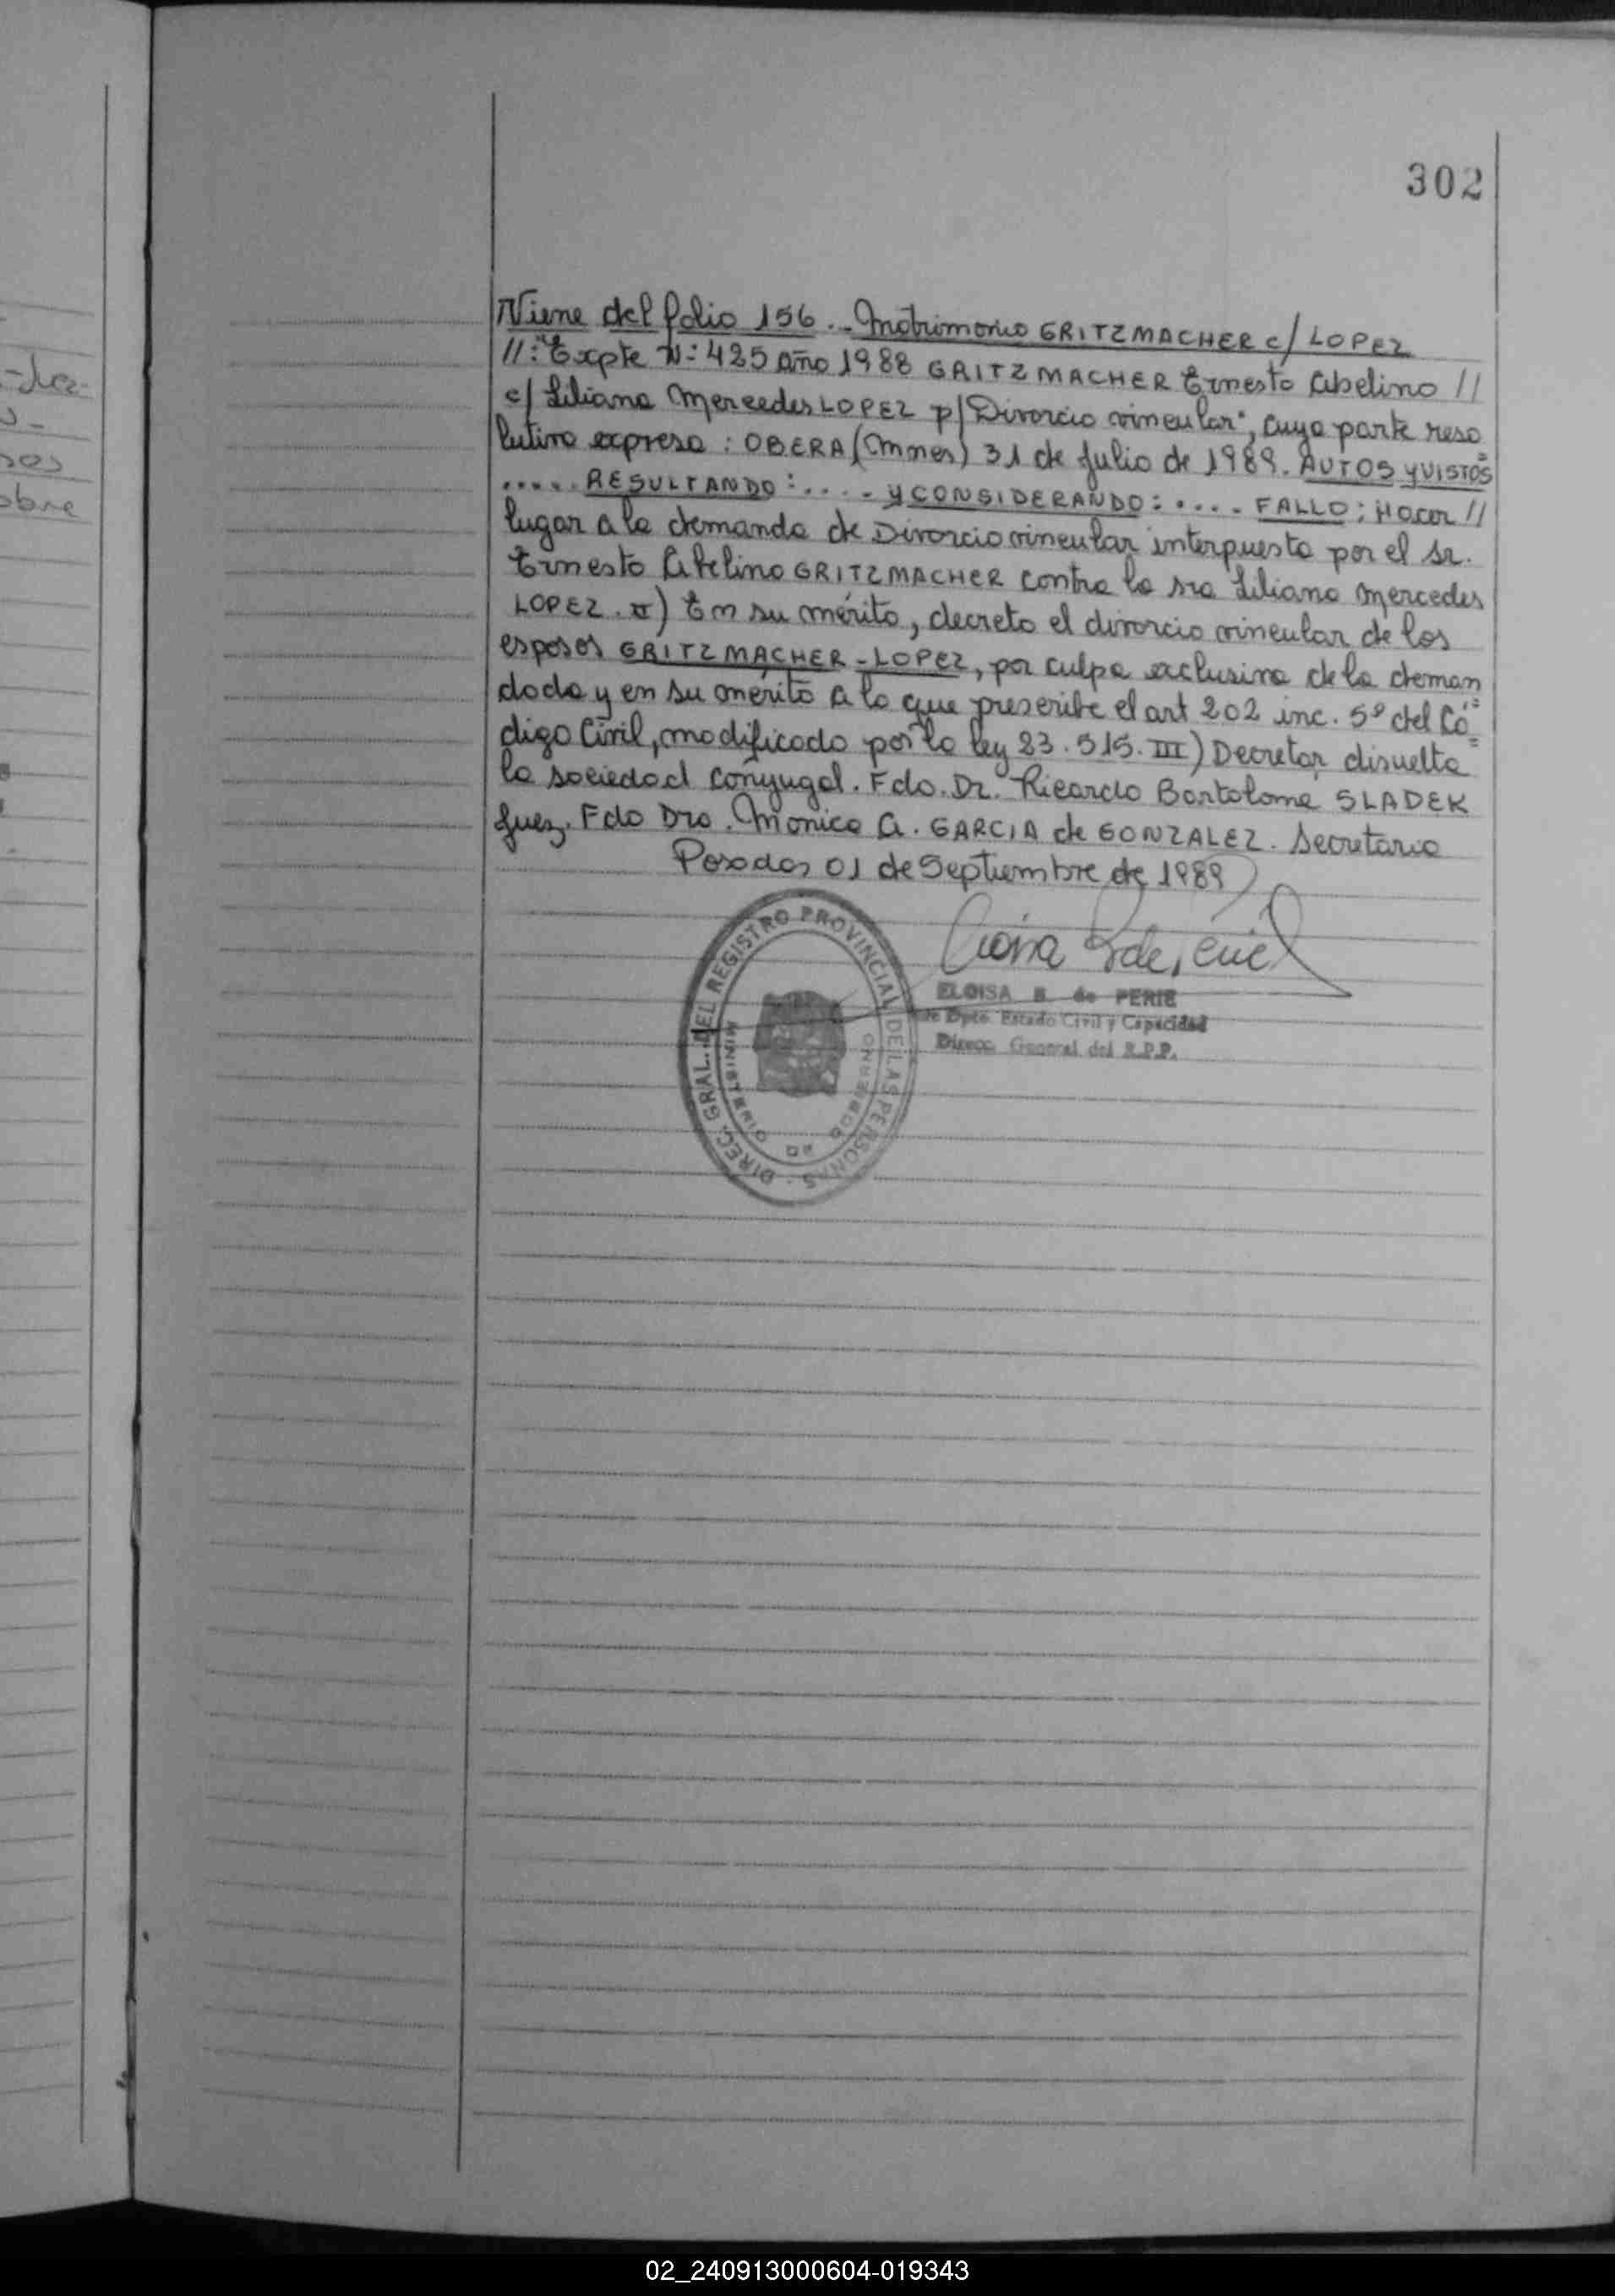 302
Viene del folio 156.- Matrimonio GRITZMACHER c/ LOPEZ
//: "Expte N: 425 año 1988 GRITZMACHER Ernesto Abelino //
c/ Liliana Mercedes LOPEZ p/ Divorcio vincular", cuya parte reso=
lutiva expresa: OBERA (Mnes) 31 de Julio de 1989. AUTOS y VISTOS
..... RESULTANDO: .... y CONSIDERANDO: .... FALLO: Hacer //
lugar a la demanda de Divorcio vincular interpuesta por el Sr.
Ernesto Abelino GRITZMACHER contra la sra Liliana Mercedes
LOPEZ. II) En su mérito, decreto el divorcio vincular de los
esposos GRITZMACHER - LOPEZ, por culpa exclusiva de la deman
dada y en su mérito a lo que prescribe el art 202 inc. 5º del Có=
digo Civil, modificado por la ley 23.515. III) Decretar disuelta =
la sociedad conyugal. Fdo. Dr. Ricardo Bartolome SLADEK
Juez. Fdo Dra. Monica A. GARCIA de GONZALEZ. Secretaria
Posadas 01 de Septiembre de 1989
ELOISA B. de PERIE
Dpto. Estado Civil y Capacidad
Direcc. General del R.P.P.
DIREC. GRAL. DEL REGISTRO PROVINCIAL DE LAS PERSONAS
MINISTERIO DE GOBIERNO
-Juez-
obre
02_240913000604-019343